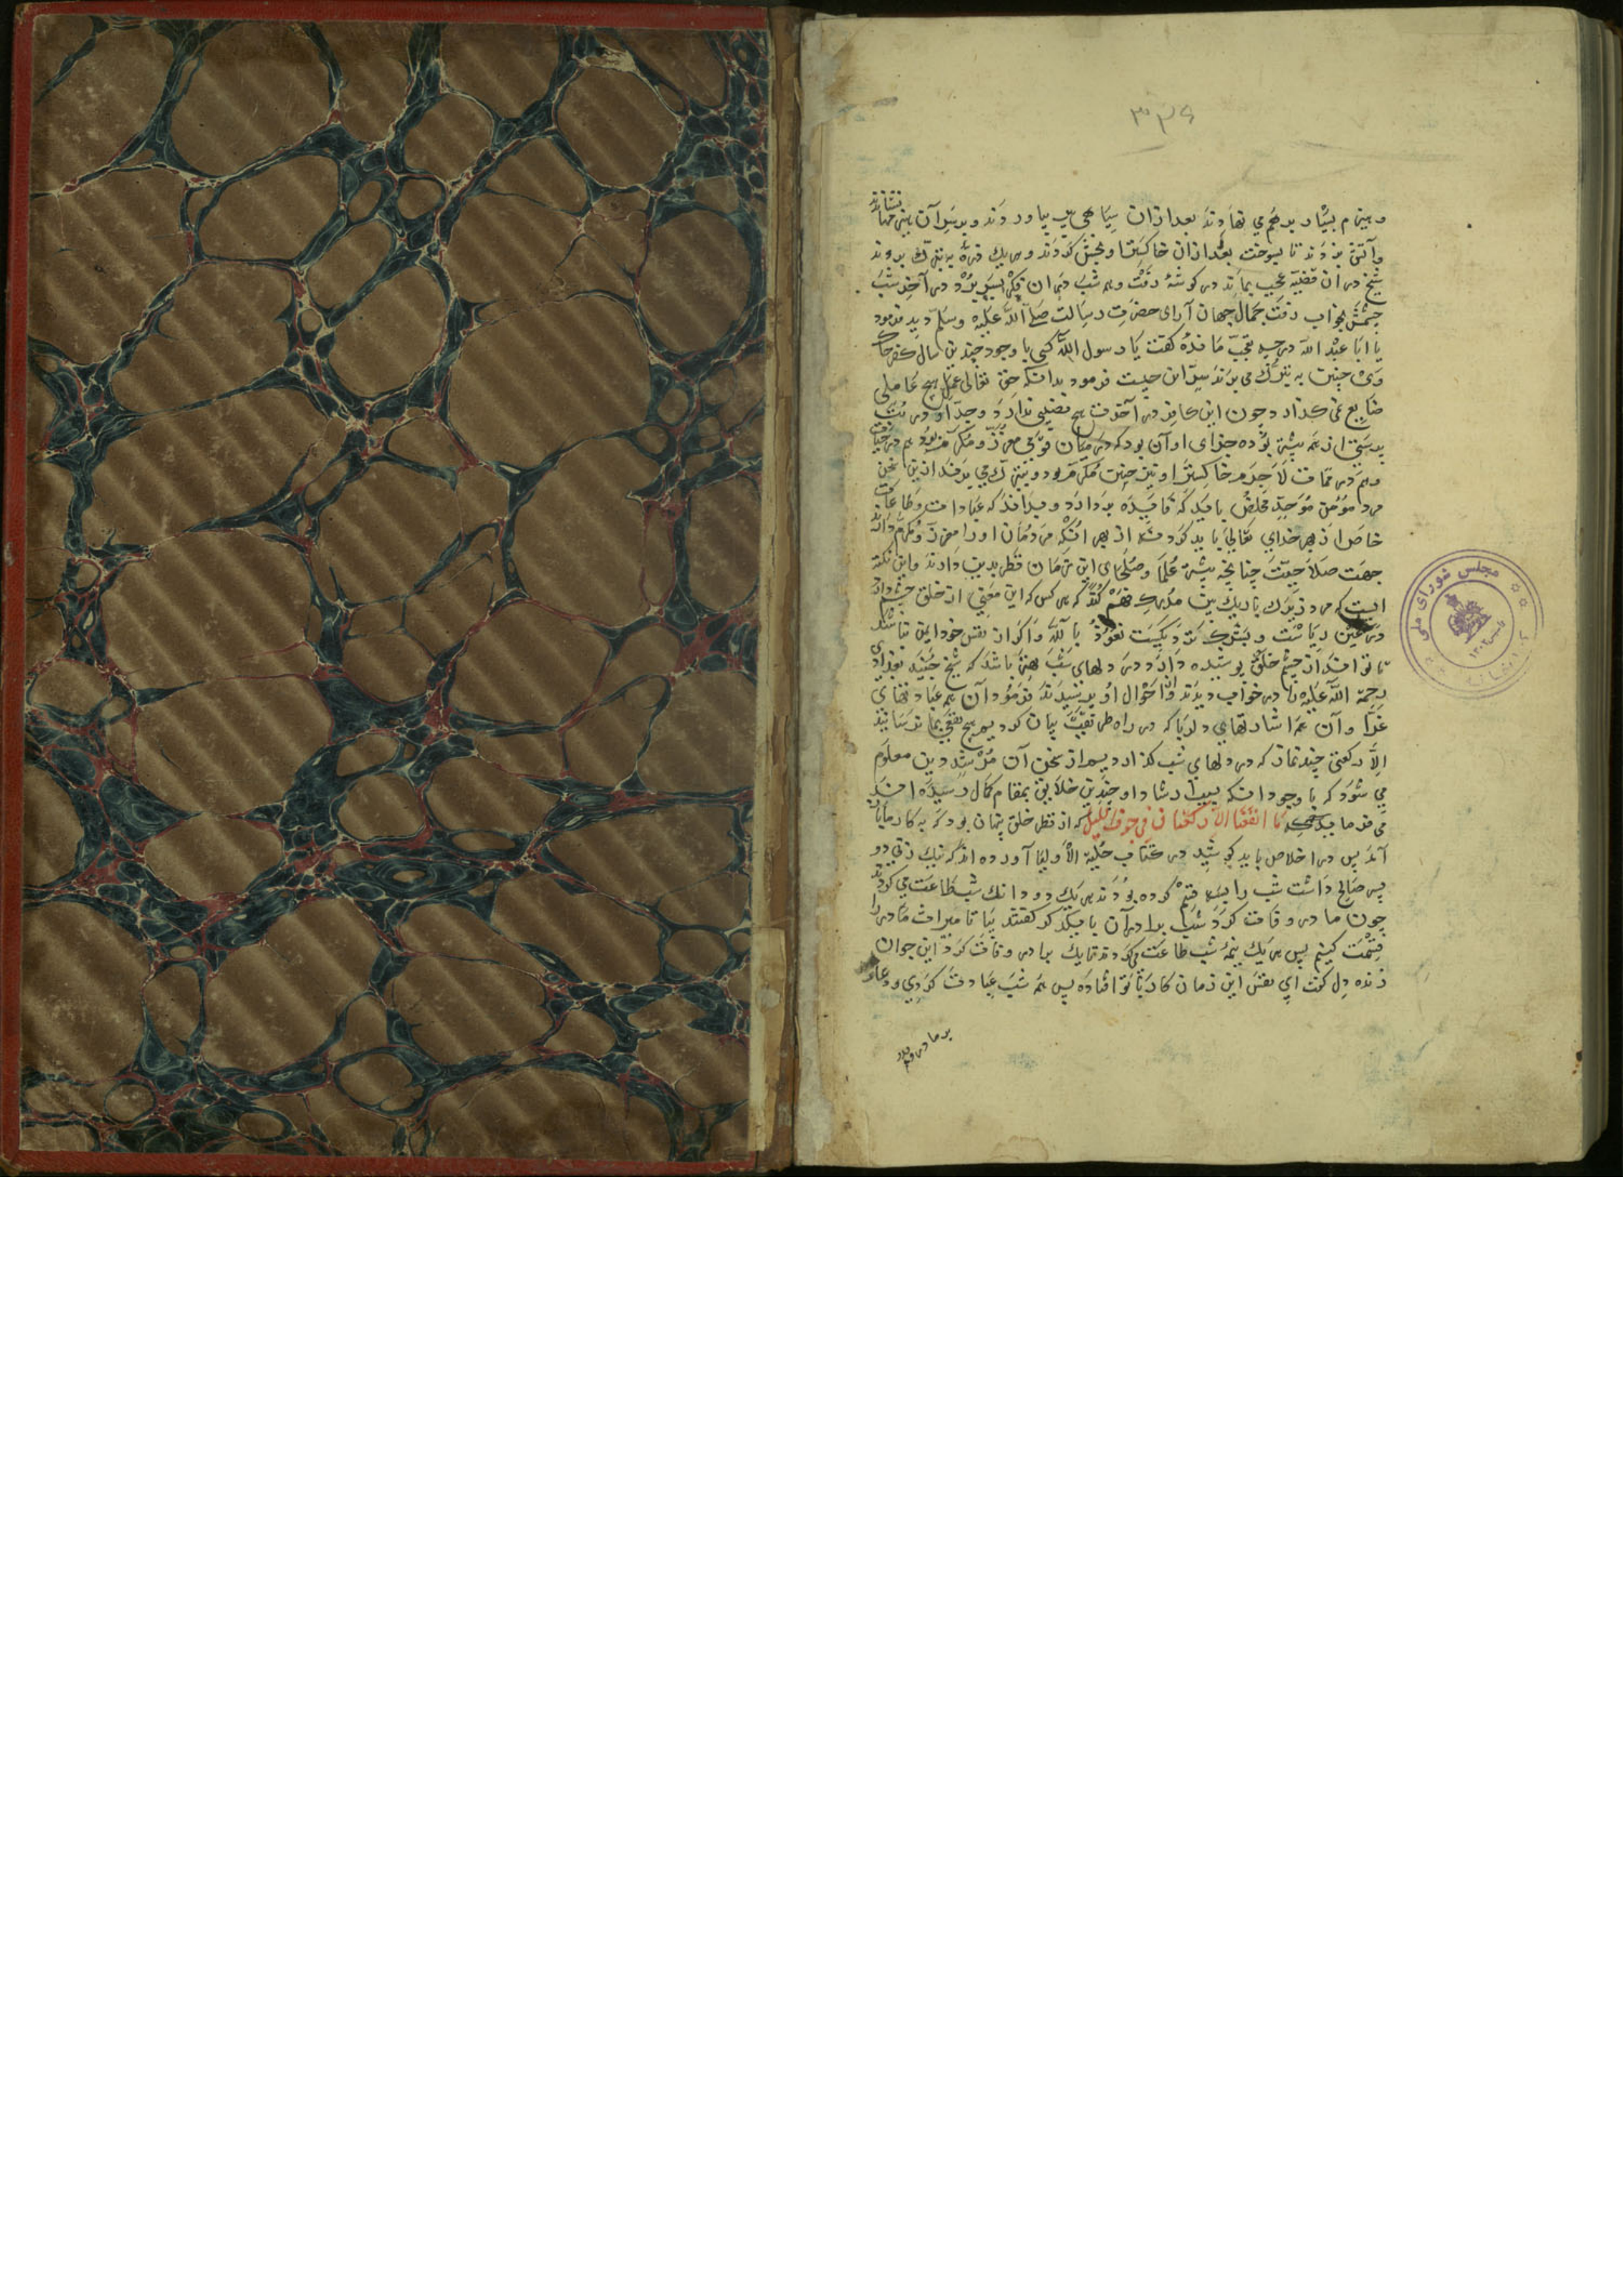 ۳۲۶
و هیزم بسیار بر هم می نهادند بعد از ان سیاهی بیاوردند و بر سر آن هیزمها بنشاندند
و آتش بزدند تا بسوخت بعد از ان خاکستر او بخش کردند و هر یک ذرهٔ به تبرک بردند
شیخ در ان قضیه عجب بماند در کوشهٔ رفت و همه شب در ان فکر بسر برد در آخر شب
چشمش بخواب رفت جمال جهان آرای حضرت رسالت صلی الله علیه وسلم دید فرمود
یا ابا عبد الله در چه تعجب ماندهٔ کفت یا رسول الله کسی با وجود چندین سال کفر خاک
وی چنین به تبرک می برند سر این چیست فرمود بدانکه حق تعالی عمل هیچ عاملی
ضایع نمی کذارد چون این کافر در آخرت هیچ نصیبی ندارد و جد او در بت
پرستی از همه بیشتر بوده جزای او آن بود که در میان قومی معزز و مکرم بود هم در حیات
و هم در ممات لاجرم خاکستر او نیز چنین مکرم بود و به تبرک می برند ازین سخن
مرد مؤمن موحد مخلص باید که فایده بردارد و بداند که عبادات و طاعات
خاص از بهر خدای تعالی باید کرد نه از بهر انکه مردمان او را معزز و مکرم دانند
جهت صلاحیت چنانچه بیشتر علما و صلحای این زمان نظر بدین دارند و این نکته
ایست که مرد زیرک باریک بین مدرک فهم کند که هر کس که این معنی از خلق چشم دارد
در عین ریاست و بشرک نزدیکست نعوذ بالله و اکر از نفس خود ایمن نباشد
تا تواند از چشم خلق پوشیده دارد و در دلهای شب بهتر باشد که شیخ جنید بغدادی
رحمة الله علیه را در خواب دیدند و از احوال او پرسیدند فرمود آن همه عبادتهای
غرا و آن همه اشارتهای دلربا که در راه طریقت بیان کردیم هیچ نفعی بما نرسانید
الا رکعتی چند نماز که در دلهای شب کذاردیم از سخن آن مرشد دین معلوم
می شود که با وجود انکه بسبب ارشاد او چندین خلایق بمقام کمال رسیده اند
می فرماید که ما انفقنا الا رکعتان فی جوف اللیل که از نظر خلق پنهان بود که به کار ما
آمد پس در اخلاص باید کوشید در کتاب حلیة الاولیا آورده اند که نیک زنی دو
پسر صالح داشت شب را بسه قسم کرده بودند هر یک دو دانک شب طاعت می کردند
چون مادر وفات کرد شب برادران با یکدیکر کفتند بیا تا میراث مادر را
قسمت کنیم پس هر یک نیمهٔ شب طاعت می کردند تا یک برادر وفات کرد این جوان
زنده دل کفت ای نفس این زمان کار با تو افتاده پس همه شب عبادت کردی و دعا
بر مادر و
مجلس شورای ملی